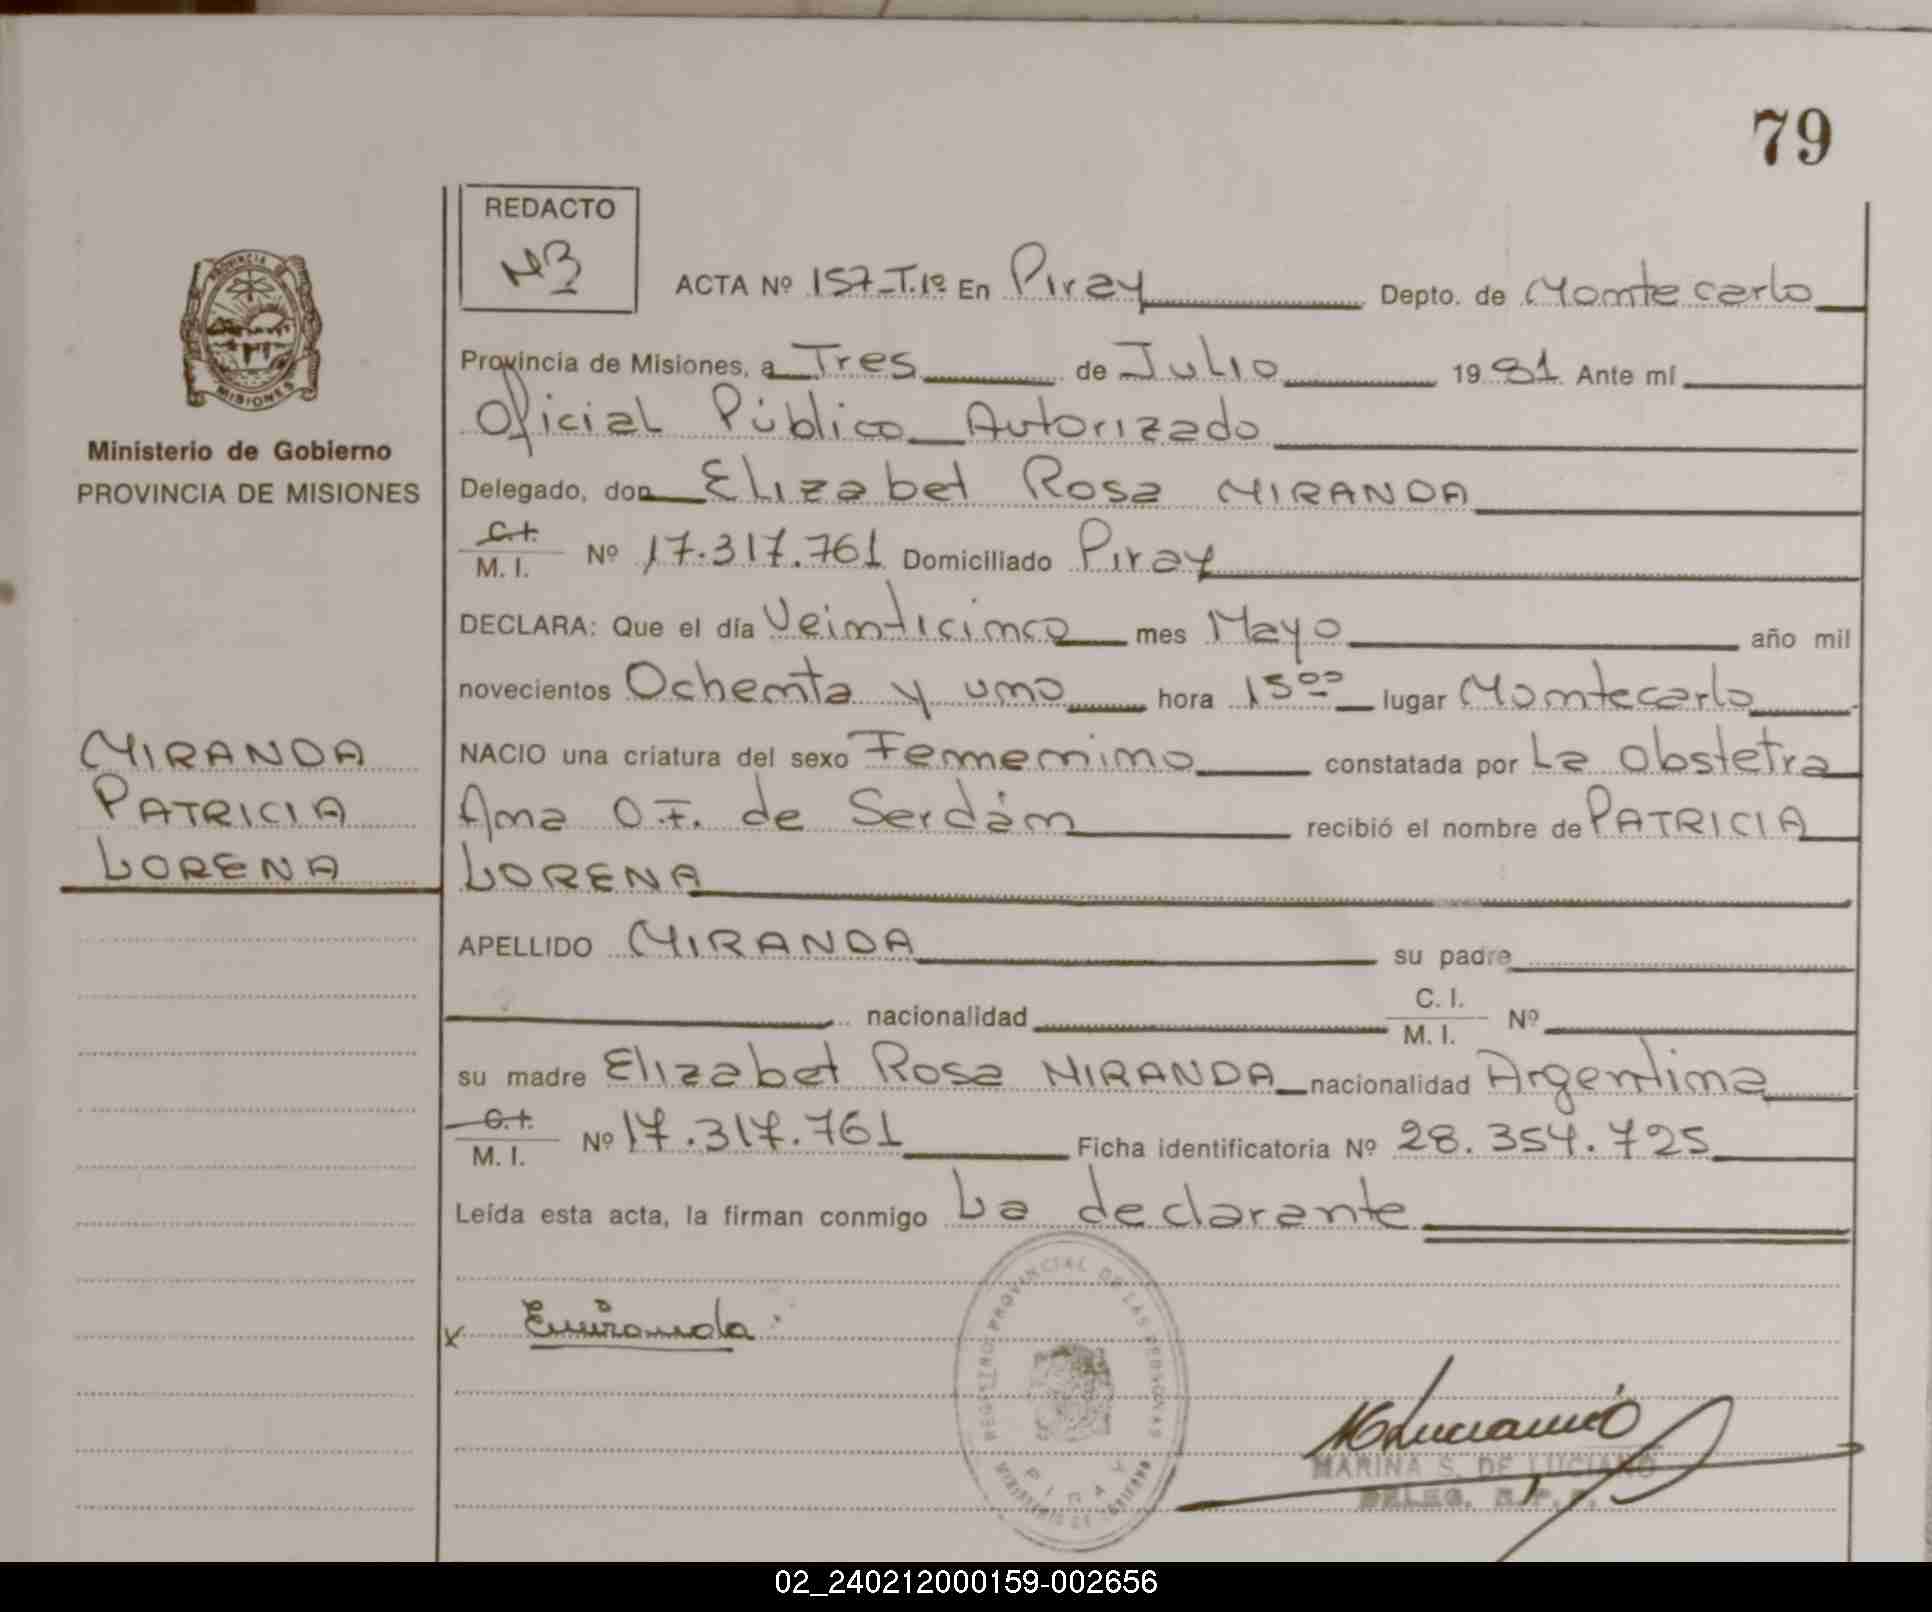 79
REDACTO
ACTA Nº 157-T.1º En Piray Depto. de Montecarlo
PROVINCIA DE MISIONES
Provincia de Misiones, a Tres de Julio 1981 Ante mí
Oficial Público Autorizado
Ministerio de Gobierno
PROVINCIA DE MISIONES
Delegado, don Elizabet Rosa MIRANDA
C.I.
M. I. Nº 17.317.761 Domiciliado Piray
DECLARA: Que el día Veinticinco mes Mayo año mil
novecientos Ochenta y uno hora 15ºº lugar Montecarlo
MIRANDA
PATRICIA
LORENA
NACIO una criatura del sexo Femenino constatada por La Obstetra
Ana O.F. de Serdán recibió el nombre de PATRICIA
LORENA
APELLIDO MIRANDA su padre
nacionalidad C. I.
M. I. Nº
su madre Elizabet Rosa MIRANDA nacionalidad Argentina
C.I.
M. I. Nº 17.317.761 Ficha identificatoria Nº 28.354.725
Leída esta acta, la firman conmigo La declarante
x EMiranda
REGISTRO PROVINCIAL DE LAS PERSONAS
PIRAY
MINISTERIO DE GOBIERNO
MARINA S. DE LUCIANO
DELEG. R.P.P.
02_240212000159-002656